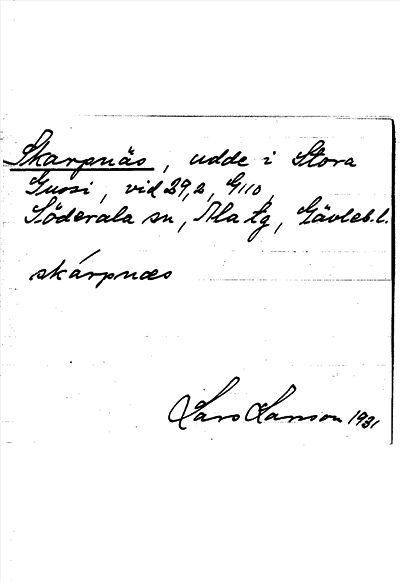 Skarpnäs, udde i Stora
Gussi, vid 29,2, G110,
Söderala sn, Ala tg, Gävleb.l.
skárpnæs
Lars Larsson 1931